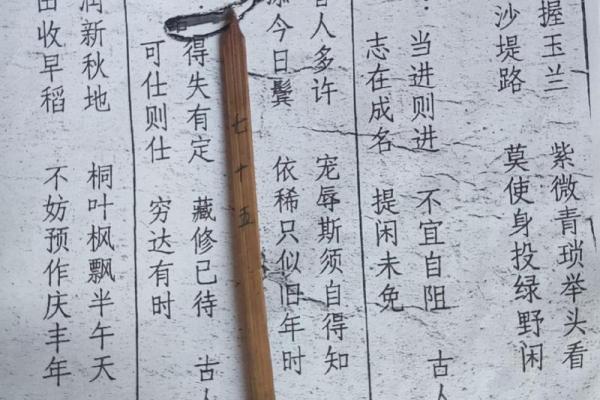 握玉兰 紫微青琐举头看
沙堤路 莫使身投绿野闲
：当进则进 不宜自阻 古人
志在成名 提闲未免
人多许 宠辱斯须自得知
今日鬓 依稀只似旧年时
七十五
得失有定 藏修已待 古人
可仕则仕 穷达有时
润新秋地 桐叶枫飘半午天
田收早稻 不妨预作庆丰年